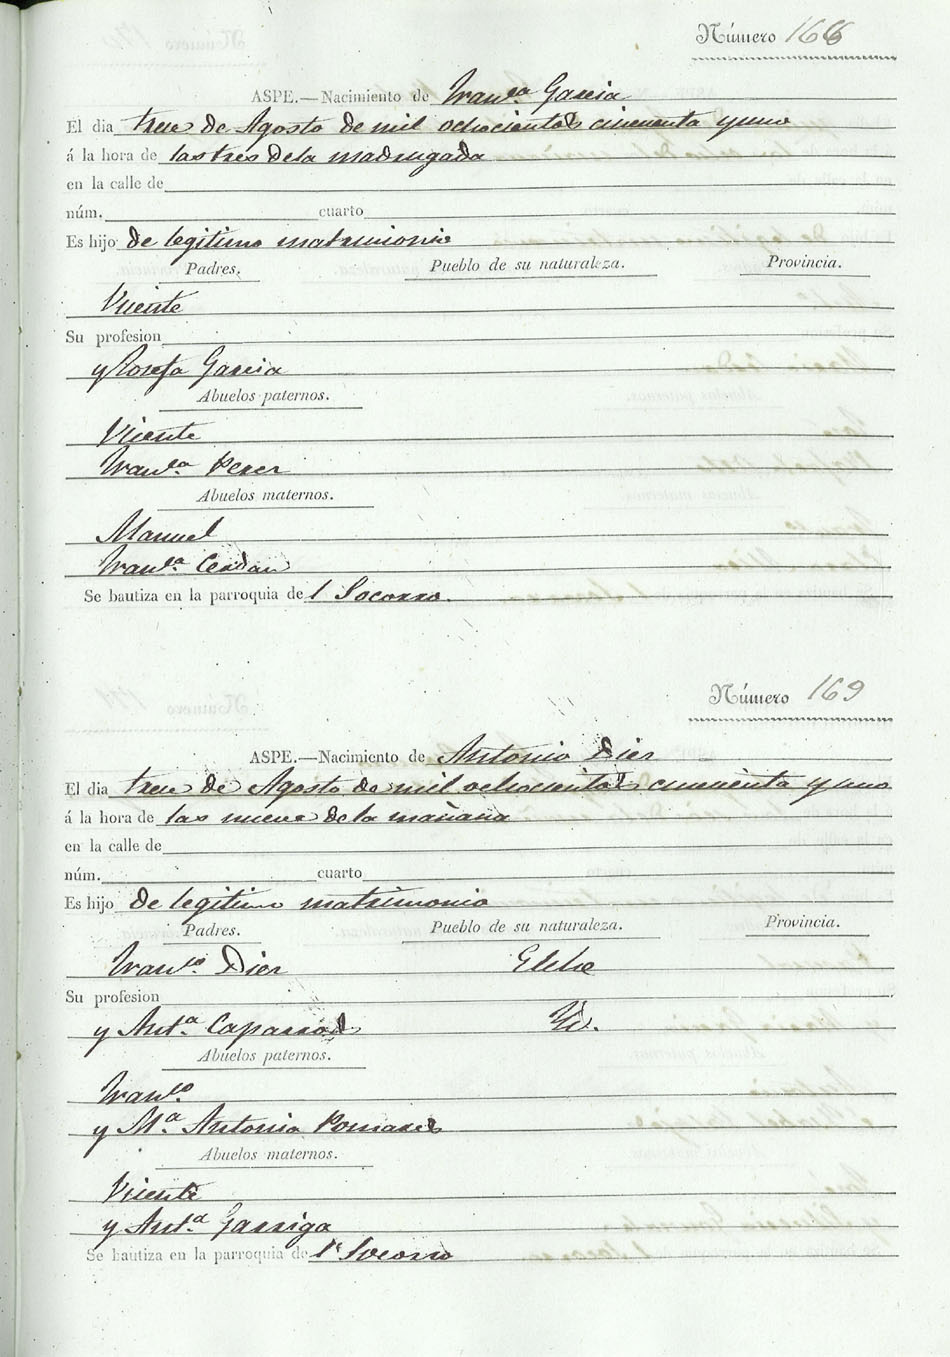 Número 166
ASPE.—Nacimiento de Franca Garcia
El dia trece de Agosto de mil ochocientos cincuenta y uno
á la hora de las tres de la madrugada
en la calle de
núm. cuarto
Es hijo de legitimo matrimonio
Padres. Pueblo de su naturaleza. Provincia.
Vicente
Su profesion
y Josefa Garcia
Abuelos paternos.
Vicente
Franca Perez
Abuelos maternos.
Manuel
Franca Cerdan
Se bautiza en la parroquia del Socorro.
Número 169
ASPE.—Nacimiento de Antonio Dies
El dia trece de Agosto de mil ochocientos cincuenta y uno
á la hora de las nueve de la mañana
en la calle de
núm. cuarto
Es hijo de legitimo matrimonio
Padres. Pueblo de su naturaleza. Provincia.
Franco Dies Elche
Su profesion
y Anta Caparros Yd.
Abuelos paternos.
Franco
y Ma Antonia Pomares
Abuelos maternos.
Vicente
y Anta Garriga
Se bautiza en la parroquia del Socorro